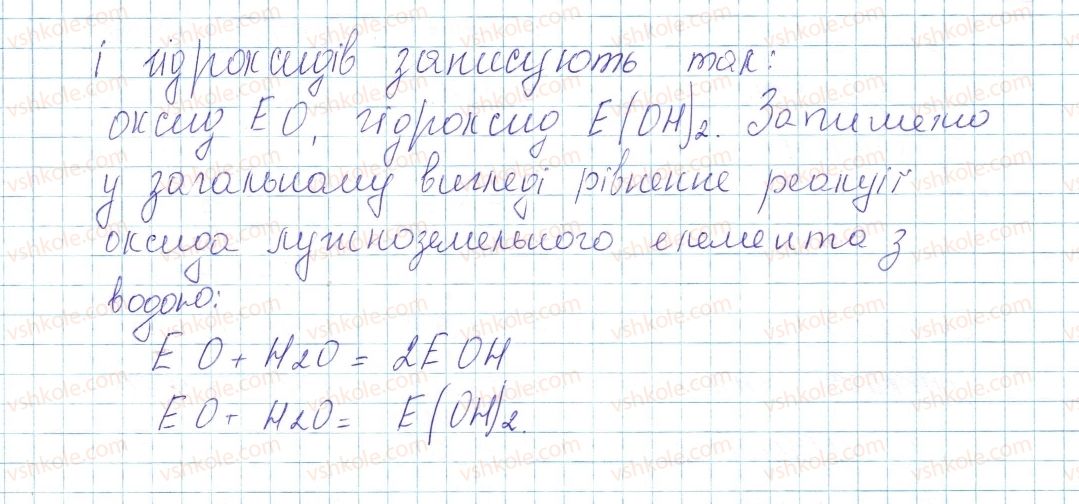 і гідроксидів записують так:
оксид EO, гідроксид E(OH)2. Запишемо
у загальному вигляді рівнення реакції
оксида лужноземельного елемента з
водою:
EO + H2O = 2EOH
EO + H2O = E(OH)2.